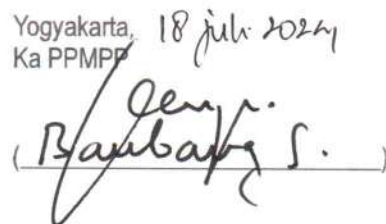 Yogyakarta, 18 juli 2024
Ka PPMPP
(Bambang S.)